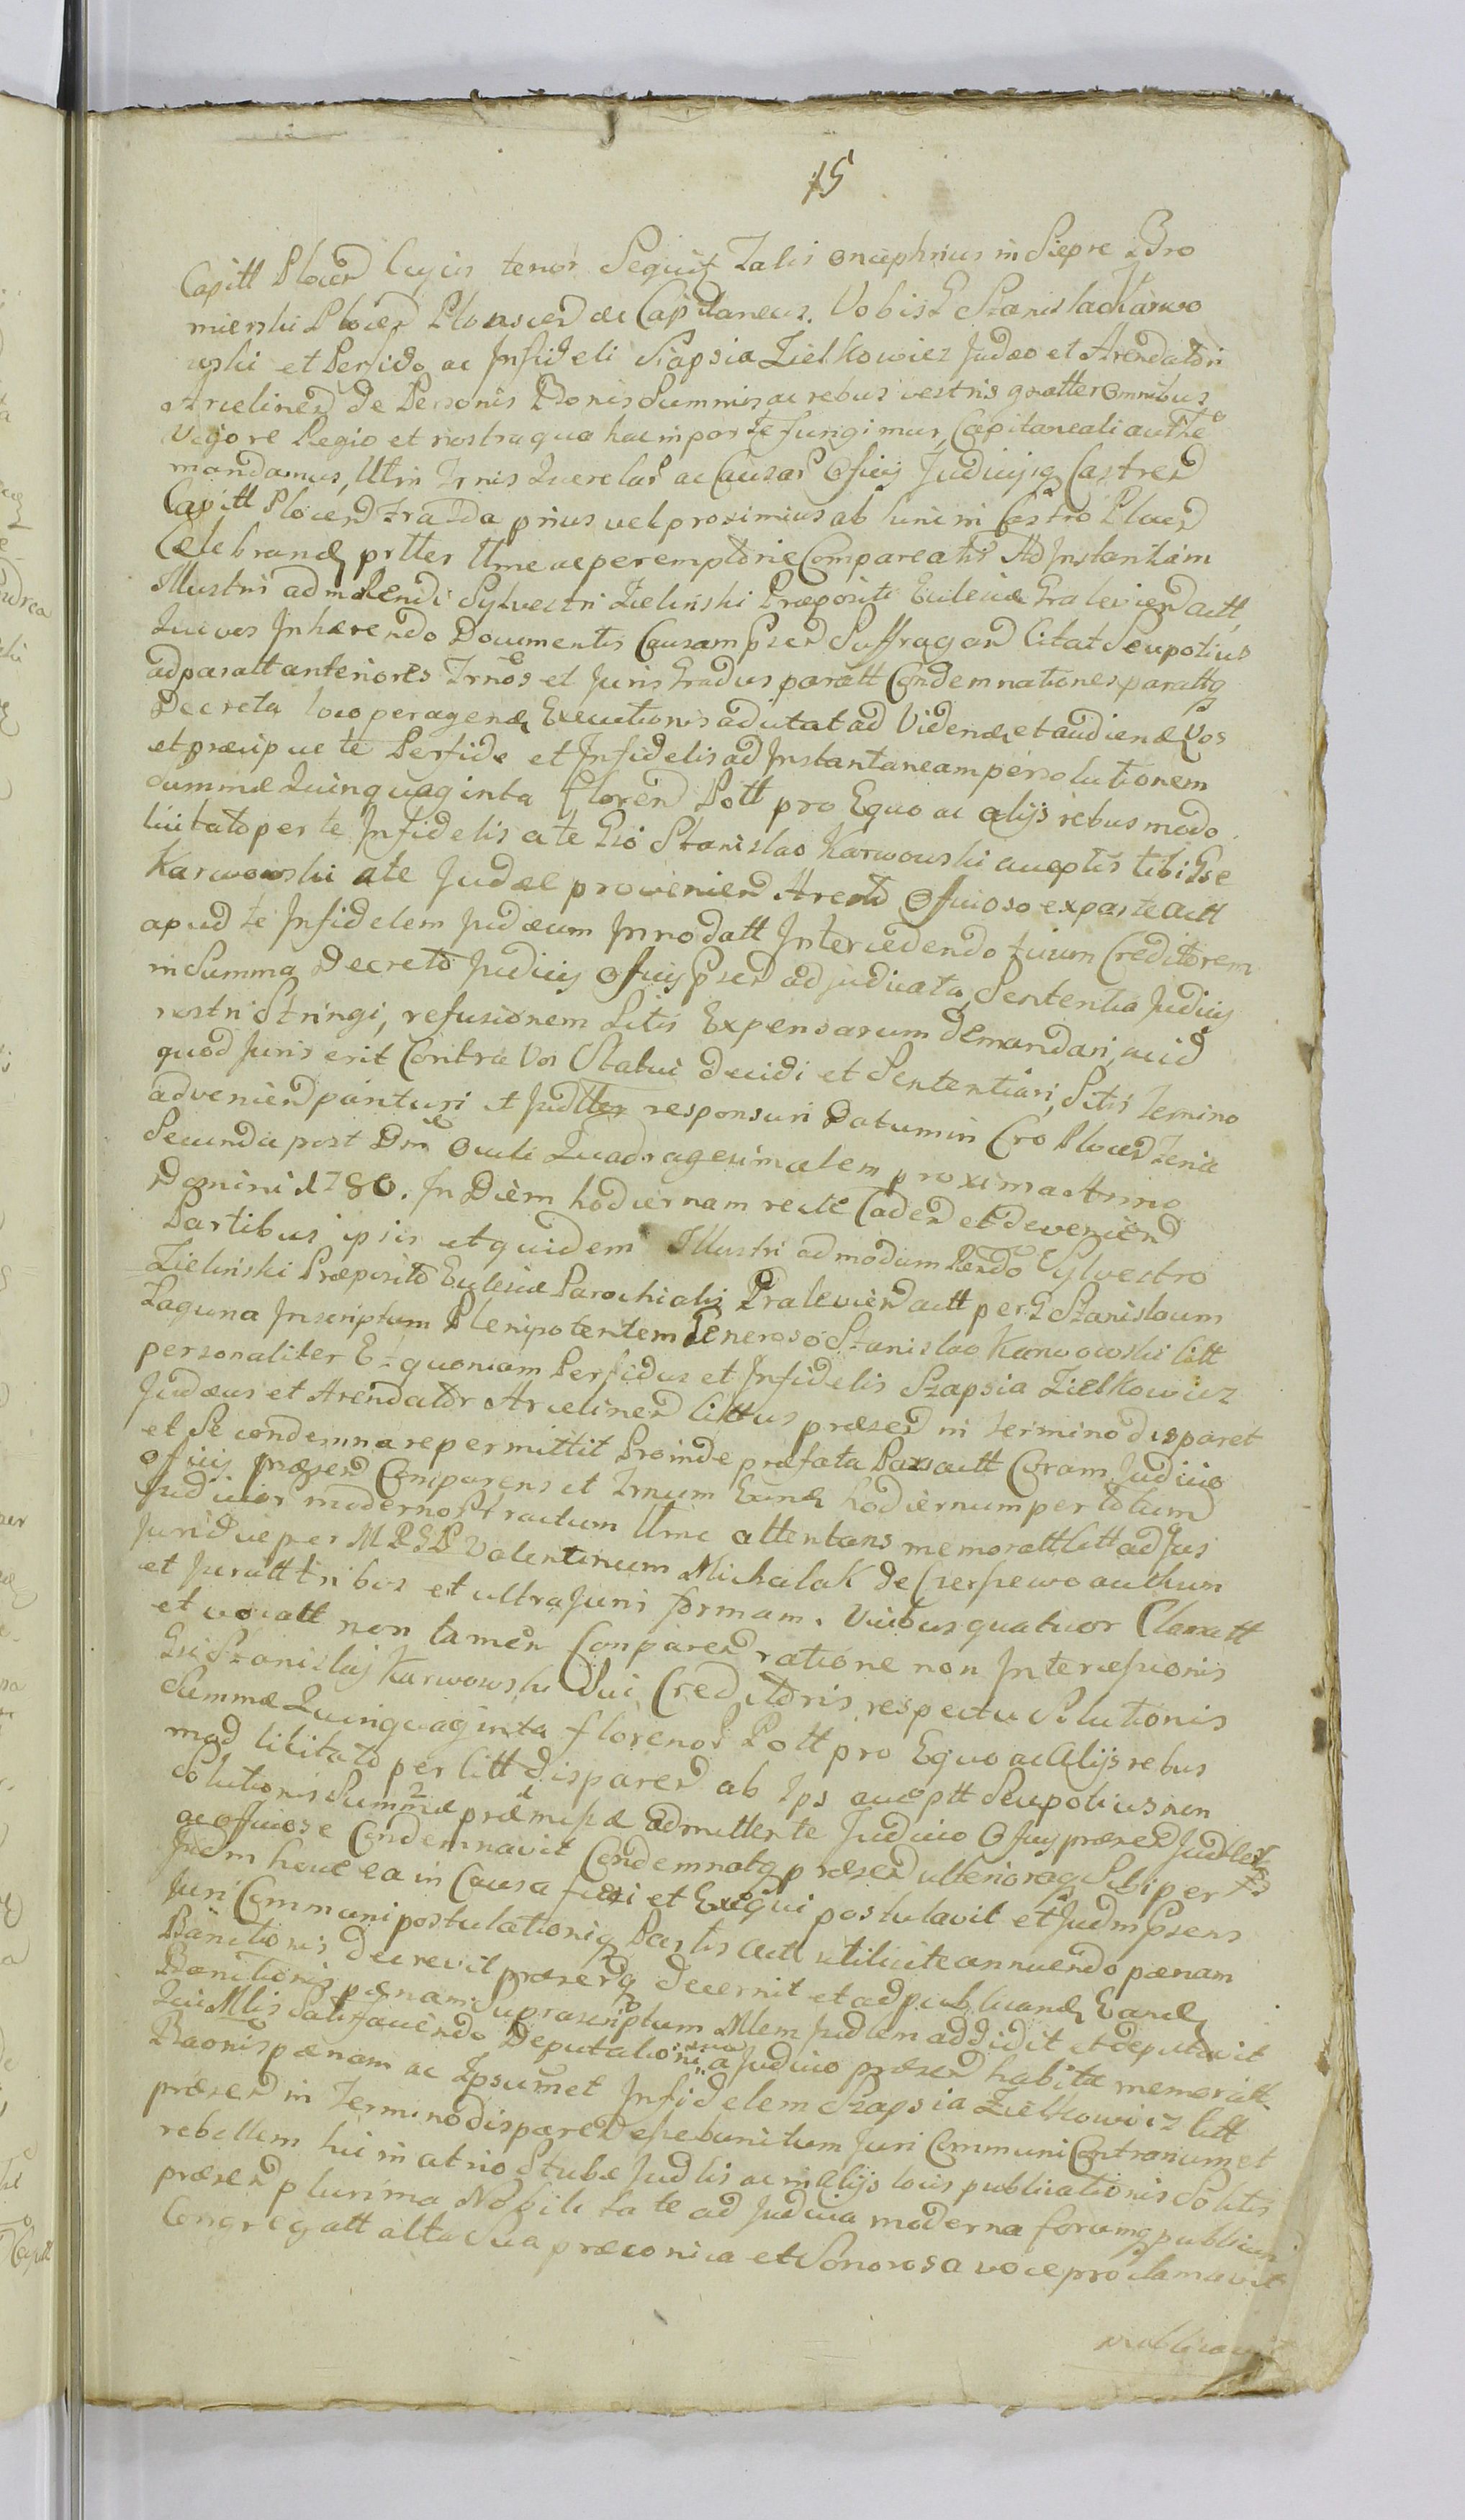 15
Capitt Plocen Cujus tenor Sequitz Talis Onuphrius in Siepre Bro
mierski Plocen Plonscen ac Capitaneus. Vobis G Stanislao Karwo
wski et Perfido ac Infideli Siapsia Zielkowicz Judæo et Arendatori
Arcelinen de Personis Bonis Summis ac rebus vestris gnatter Omnibus
Vigore Regio et nostra qua hac in parte fungimur, Capitaneali authe
mandamus, Ut in Trnis Querelar ac Causar Officij Judicijq Castren
Capitt Plocen Tractda prius vel proximius ab hinc in Castro Plocen
Celebrand prtter ttme ac peremptorie Compareatis Ad Instantiam
Illustris adm Rendi Sylvestri Zielinski Præpositi Ecclesiæ Gralevien actt,
Qui vos Inhærendo Documentis Causam Psen Suffragan Citat Seu potius
ad paratt anteriores Trnos et Juris Gradus paratt Condemnationes parattq
Decreta loco peragend Executionis adcitat ad Vidend et audiend Vos
et præcipue te Perfide et Infidelis ad Instantaneam persolutionem
summæ Quinquaginta floren Poll pro Equo ac alijs rebus modo
licitato per te Infidelis a te Gso Stanislao Karwowski acceptis tibi Gse
Karwowski a te Judæe provenien Arend Officioso ex parte actt
apud te Infidelem Judæum Innodatt Intercedendo tuum Creditorem
in Summa Decreto Judicij Officij Psen adjudicata, Sententia Judicij
nostri Stringi, refusionem Litis Expensarum demandari, ac id
quod Juris erit Contra Vos Statui decidi et Sententiari, Sitis Temino
advenien parituri et Judtter responsuri Datum in Cro Plocen Feria
Secunda post Dm Oculi Quadragesimalem proxima Anno
Domini 1780. In Diem hodiernam recte Caden et devenien
Partibus ipsis et quidem Illustri admodum Rendo Sylvestro
Zielinski Præposito Ecclesiæ Parochialis Gralevien actt per G Stanislaum
Laguna Inscriptum Plenipotentem Generoso Stanislao Karwowski Citt
personaliter Et quoniam Perfidus et Infidelis Szapsia Zielkowicz
Judæus et Arendator Arcelinen Cittus præsen in termino disparet
et Se condemnare permittit Proinde præfata Pars actt Coram Judicio
Officij præsen Comparens et Trnum Eund hodiernum per totum
Judicior moderno Tractum ttme attentans memoratt Citt ad Jus
Juridice per M P G P Valentinum Michalak de Cserpewo authum
et juratt tribus et ultra Juris formam. Vicibus quatuor Clamatt
et vocatt non tamen Comparen ratione non Intercessionis
Gsi Stanislaj Karwowski Sui Creditoris respectu Solutionis
summæ Quinquaginta florenor Poll pro Equo ac Alijs rebus
mod licitato per Citt disparen ab Ips acceptt Seu potius non
Solutionis Summæ præmissæ admitten te Judicio Officij præsen Judtter
ac officiose Condemnavit Condemnatq præsen ulterioraq Sibi per
Idem hocce ea in Causa fieri et Exequi postulavit et Judm Psens
Juri Communi postulationiq Partis actt utilicite annuendo pænam
Banitionis decrevit præsenq decernit et ad publicand Eand
Banitionis pænam Suprascriptum Mlem Judlem addidit et deputavit
Qui Mlis Satisfaciendo Deputationi suæ a Judicio præsen habitæ memoratt
Baonis pænam ac Ipsummet Infidelem Szapsia Zielkowicz Citt
præsen in Termino disparen esse banitum Juri Communi Contrarium et
rebellem hic in atrio Stubæ Judlis ac in alijs locis publicationis Solitis
præsen plurima Nobilitate ad Judicia moderna forumq publicum
Congregatt alta Sua præconica et Sonorosa voce proclamavit
publicavit